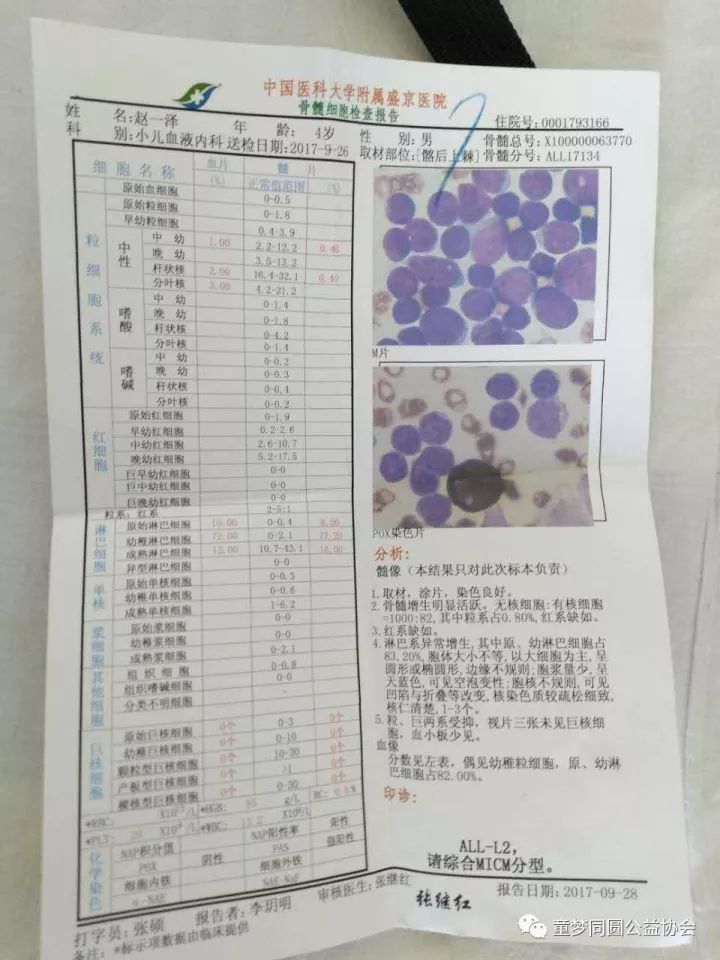 中国医科大学附属盛京医院
骨髓细胞检查报告
姓 名:赵一泽 年 龄: 4岁 性 别:男 住院号:0001793166
科 别:小儿血液内科 送检日期:2017-9-26 取材部位:[髂后上棘] 骨髓总号:X100000063770
骨髓分号:ALL17134
细 胞 名 称 血片(%) 髓 片 正常值范围 (%)
原始血细胞 0-0.5
粒细胞系统
原始粒细胞 0-1.8
早幼粒细胞 0.4-3.9
中性
中 幼 1.00 2.2-12.2 0.40
晚 幼 3.5-13.2
杆状核 2.00 16.4-32.1 0.40
分叶核 3.00 4.2-21.2
嗜酸
中 幼 0-1.4
晚 幼 0-1.8
杆状核 0-4.2
分叶核 0-1.4
嗜碱
中 幼 0-0.2
晚 幼 0-0.3
杆状核 0-0.4
分叶核 0-0.2
红细胞
原始红细胞 0-1.9
早幼红细胞 0.2-2.6
中幼红细胞 2.6-10.7
晚幼红细胞 5.2-17.5
巨早幼红细胞 0-0
巨中幼红细胞 0-0
巨晚幼红细胞 0-0
粒系: 红系 2-5:1
淋巴细胞
原始淋巴细胞 10.00 0-0.4 6.00
幼稚淋巴细胞 72.00 0-2.1 77.20
成熟淋巴细胞 12.00 10.7-43.1 16.00
异型淋巴细胞 0-0
单核
原始单核细胞 0-0.3
幼稚单核细胞 0-0.6
成熟单核细胞 1-6.2
浆细胞
原始浆细胞 0-0
幼稚浆细胞 0-0
成熟浆细胞 0-2.1
其他细胞
组 织 细 胞 0-0.8
组织嗜碱细胞
分类不明细胞
巨核细胞
原始巨核细胞 0个 0-3 0个
幼稚巨核细胞 0个 0-10 0个
颗粒型巨核细胞 0个 10-30 0个
产板型巨核细胞 0个 >1 0个
裸核型巨核细胞 0个 0-30 0个
*RBC: X10¹²/L *HGB: g/L RC:
*PLT: X10⁹/L *WBC: X10⁹/L
化学染色
NAP积分值 NAP阳性率 阳性
POX 阴性 PAS 强阳性
细胞内铁 细胞外铁
α-NAE NAE-NaF
M片
POX染色片
分析:
髓像（本结果只对此次标本负责）
1.取材，涂片，染色良好。
2.骨髓增生明显活跃。无核细胞:有核细胞
=1000:82,其中粒系占0.80%,红系缺如。
3.红系缺如。
4.淋巴系异常增生,其中原、幼淋巴细胞占
83.20%,胞体大小不等,以大细胞为主,呈
圆形或椭圆形,边缘不规则;胞浆量少,呈
天蓝色,可见空泡变性;胞核不规则,可见
凹陷与折叠等改变,核染色质较疏松细致,
核仁清楚,1-3个。
5.粒、巨两系受抑，视片三张未见巨核细
胞，血小板少见。
血像
分数见左表，偶见幼稚粒细胞，原、幼淋
巴细胞占82.00%。
印诊:
ALL-L2,
请综合MICM分型。
打字员:张硕 报告者:李玥明 审核医生:张继红 张继红 报告日期:2017-09-28
备注: *标示项数据由临床提供
童梦同圆公益协会